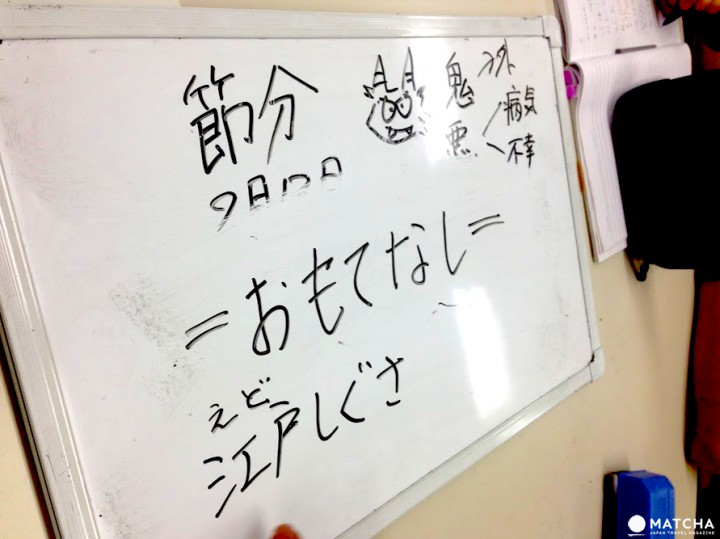 節分
鬼 外
悪 病気
不幸
=おもてなし=
えど
江戸しぐさ
MATCHA
JAPAN TRAVEL MAGAZINE